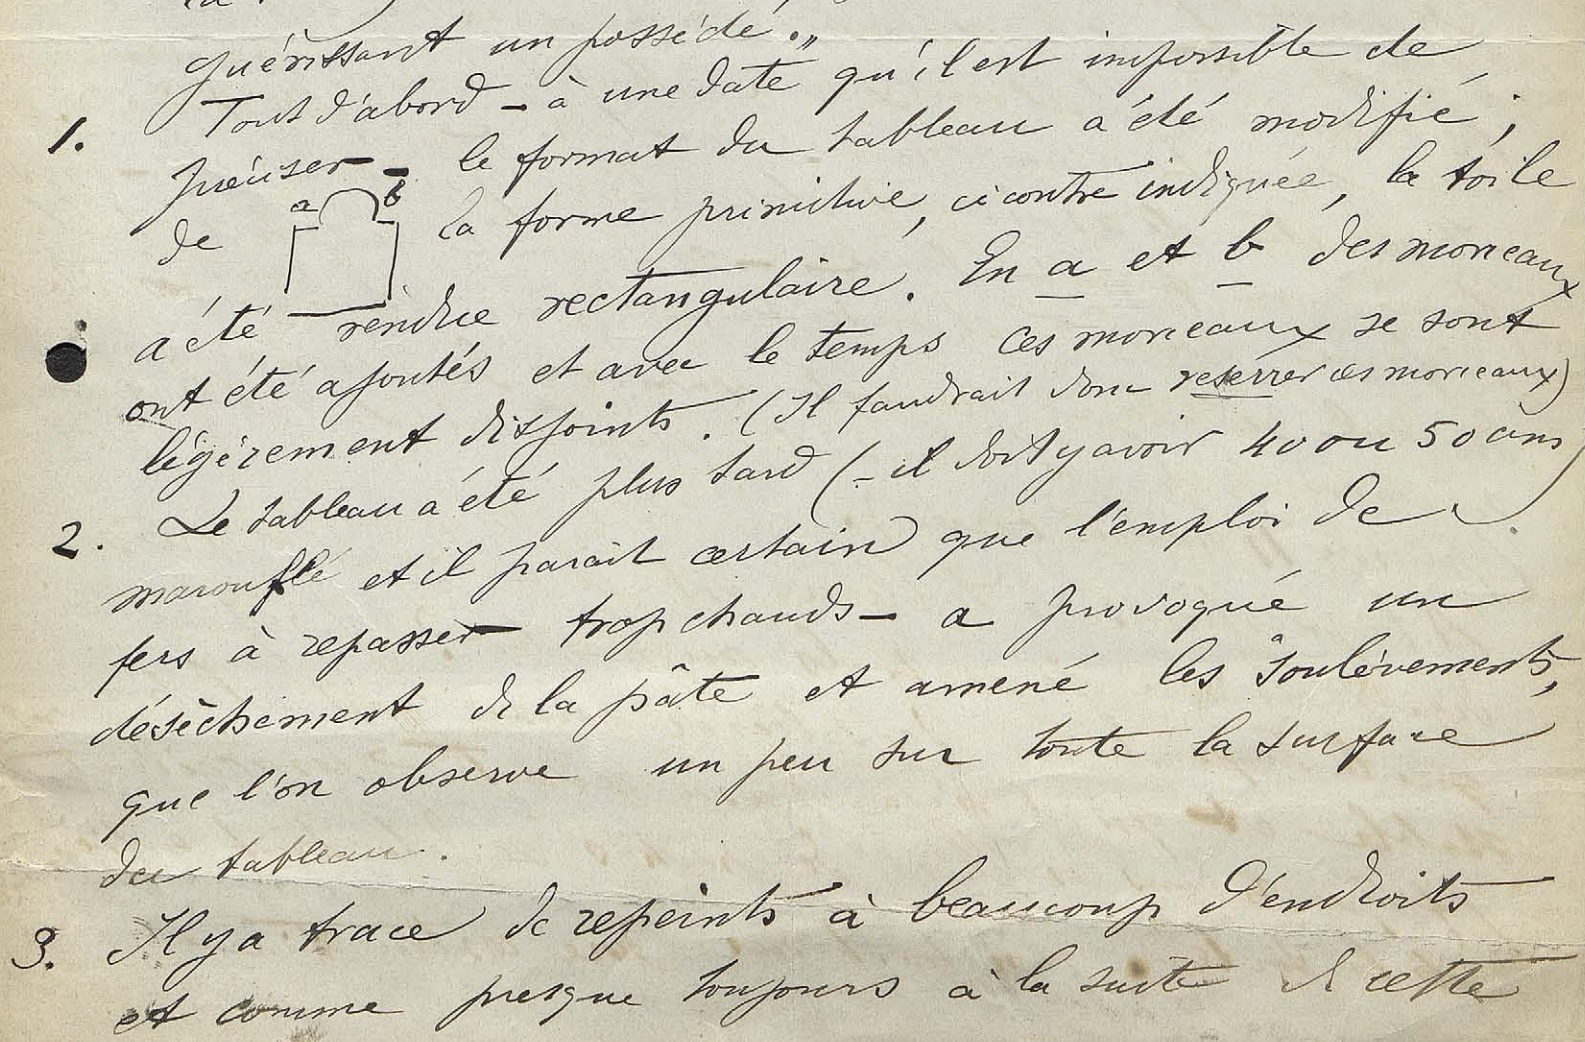 guérissant un possédé. „
1. Tout d'abord – à une date qu'il est impossible de
préciser – le format du tableau a été modifié ;
de a b la forme primitive, ci contre indiquée, la toile
a été rendue rectangulaire. En a et b des morceaux
ont été ajoutés et avec le temps ces morceaux se sont
légèrement disjoints. (Il faudrait donc reserrer ces morceaux)
2. Le tableau a été plus tard (– il doit y avoir 40 ou 50 ans)
marouflé et il parait certain que l'emploi de
fers à repasser trop chauds – a provoqué un
désèchement de la pâte et amené les soulèvements,
que l'on observe un peu sur toute la surface
du tableau.
3. Il y a trace de repeints à beaucoup d'endroits
et comme presque toujours à la suite de cette